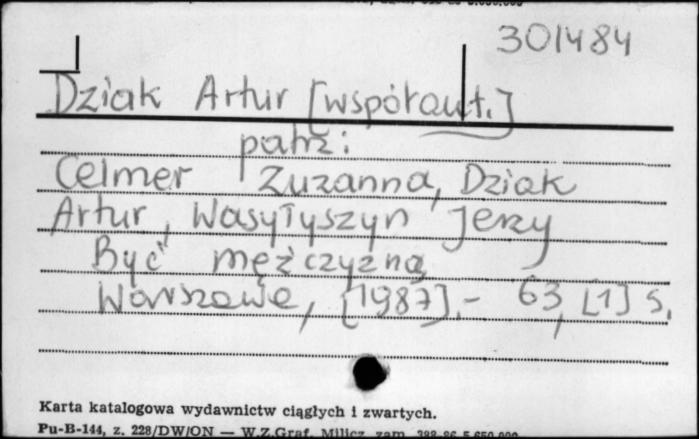 301484
Dziak Artur [współaut.]
patrz:
Celmer Zuzanna, Dziak
Artur, Wasyłyszyn Jerzy
Być mężczyzną
Warszawa, [1987].- 63, [1] s.
Karta katalogowa wydawnictw ciągłych i zwartych.
Pu-B-144, z. 228/DW/ON — W.Z.Graf. Milicz, zam.